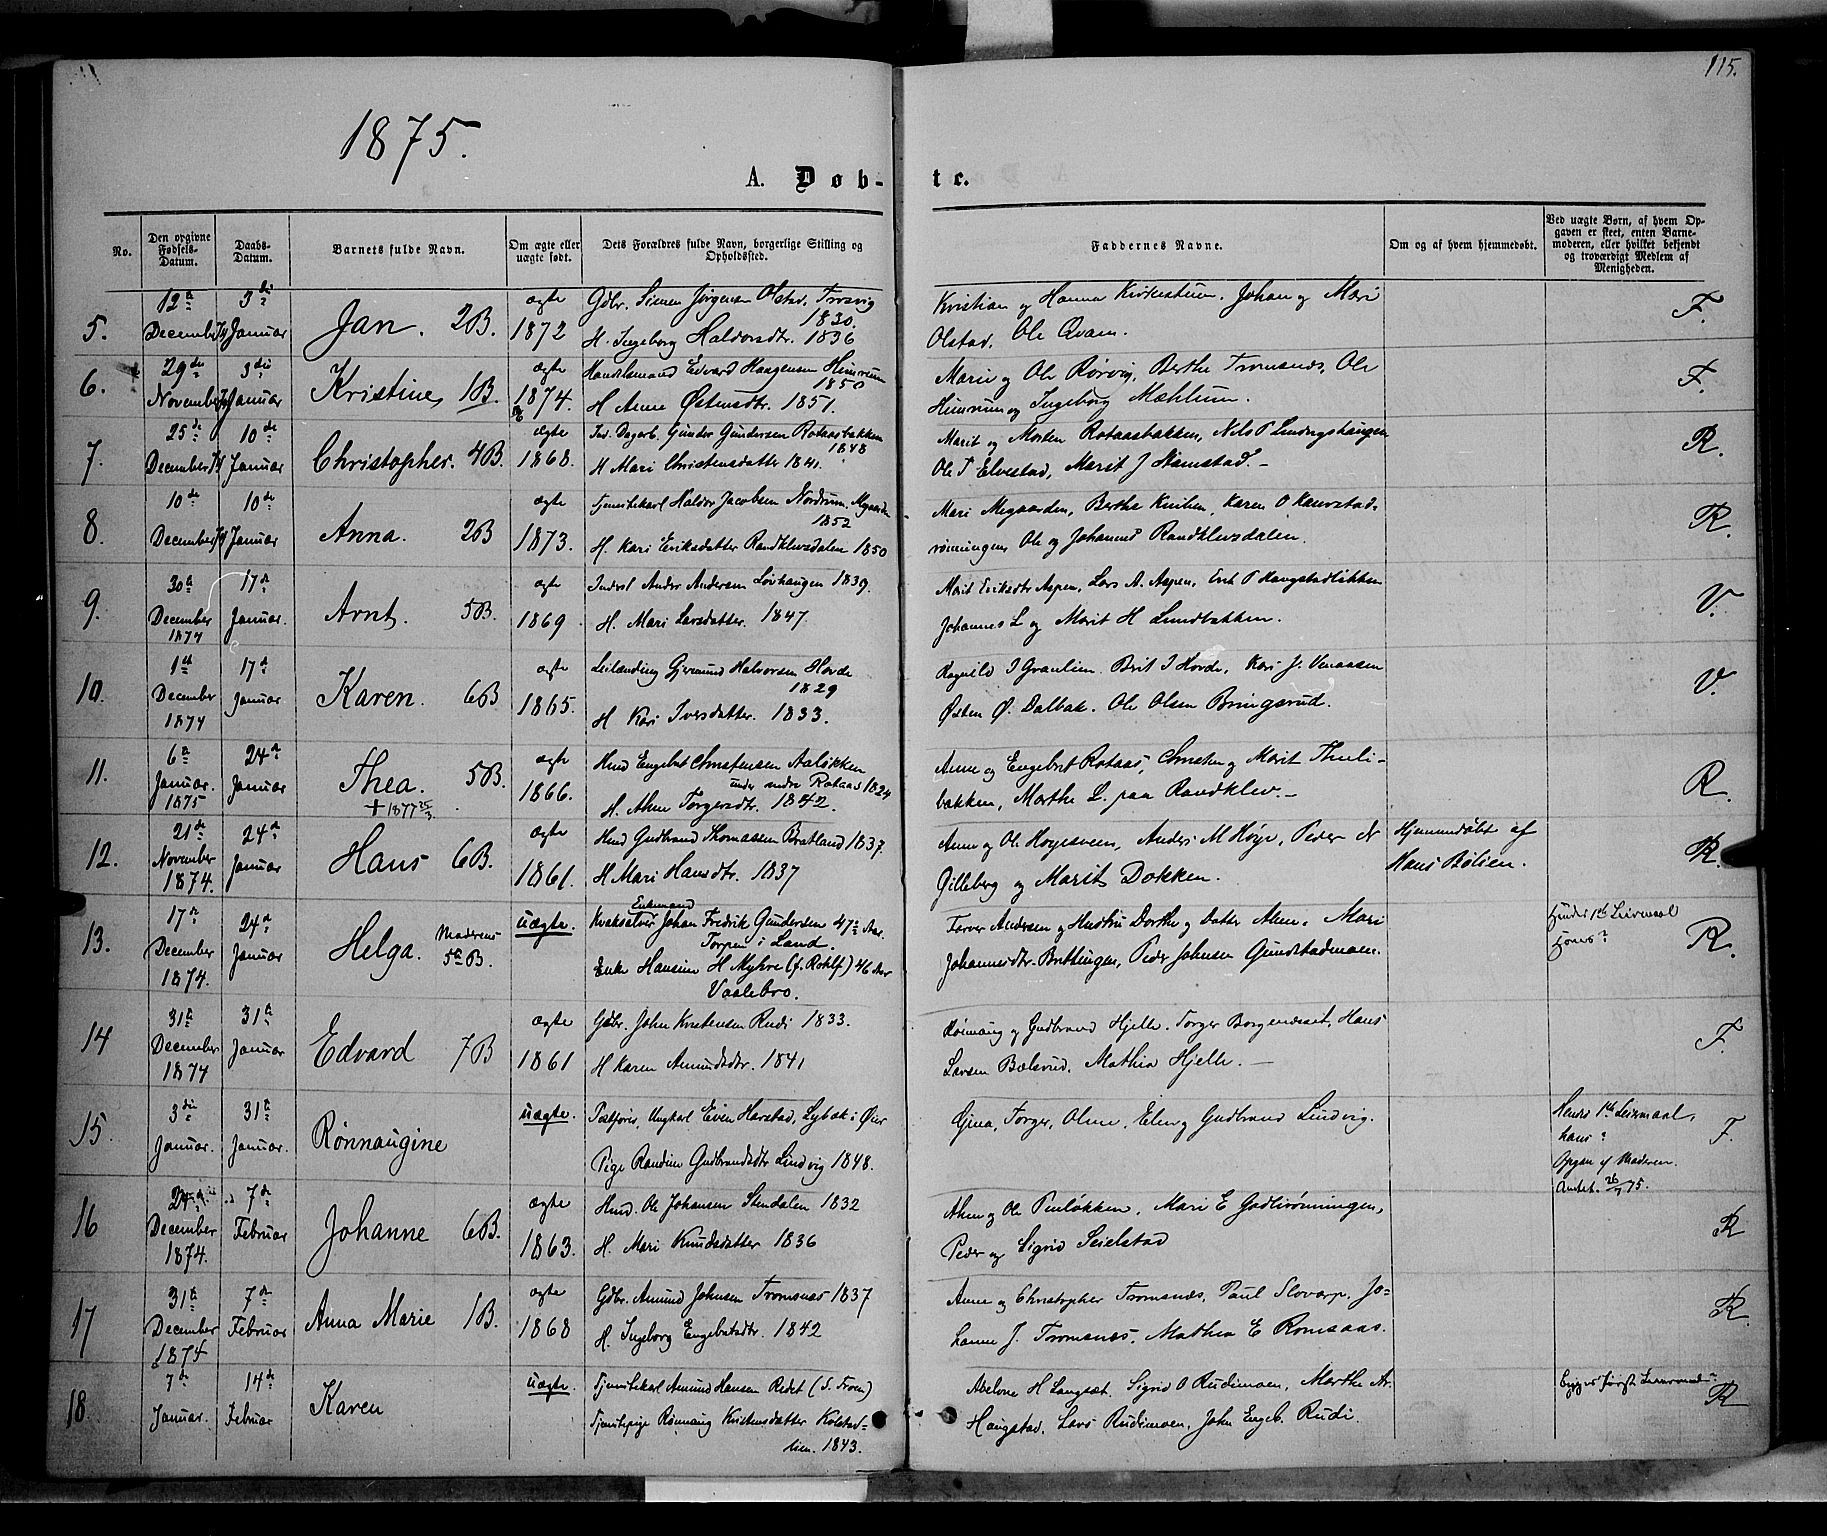 115.
1875.
A. Døb-
te.
No.
Den opgivne Fødsels-Datum.
Daabs-Datum.
Barnets fulde Navn.
Om ægte eller uægte født.
Dets Forældres fulde Navn, borgerlige Stilling og Opholdssted.
Faddernes Navne.
Om og af hvem hjemmedøbt.
Ved uægte Børn, af hvem Opgaven er skeet, enten Barnemoderen, eller hvilket bekjendt og troværdigt Medlem af Menigheden.
5. 12te December 74 3die Januar Jan. 2B. ægte 1872
Gdbr. Simen Jørgensen Olstad, Tresvig 1830.
H. Ingeborg Haldorsdtr. 1836
Kristian og Hanna Kirkestuen. Johan og Mari
Olstad. Ole Qvam.
F.
6. 29de November 3die Januar Kristine, 1B. ægte 1874.
Handelsmand Edvard Haagensen Himrum 1850
H Anne Østensdtr. 1851.
Marie og Ole Rørvig, Berthe Tromsnes, Ole
Himrum og Ingeborg Mæhlum.
F.
7. 25de December 74 10de Januar Christopher. 4B. ægte 1868.
Ind. Dagarb. Gunder Gundersen Rotaasbakken 1848
H Mari Christensdatter 1841.
Marit og Morten Rotaasbakken, Nils P Lindvigshaugen
Ole T Elvestad, Marit J Hamstad. -
R.
8. 10de December 74 10de Januar Anna. 2B ægte 1873.
Tjenestekarl Haldor Jacobsen Nordrum, Megaarden 1852
H. Kari Eriksdatter Randklevsdalen 1850
Mari Megaarden, Berthe Knihen, Karen O Kanrstad-
rønningen, Ole og Johannes Randklevsdalen.
R.
9. 30te December 1874 17de Januar. Arnt. 5B. ægte 1869.
Inderst Anders Andersen Løvhaugen 1839.
H. Mari Larsdatter. 1847.
Marit Eriksdtr Aspen, Lars A. Aspen, Erik P Haugstadløkken
Johannes L og Marit H Lundbakken.
V.
10. 1ste December 1874 17de Januar Karen. 6B ægte 1865.
Leilænding Gjermund Halvorsen Hovde 1829
H Kari Iversdatter. 1833.
Ragnild I Graulien. Brit I Hovde, Kari J. Venaasen
Østen Ø. Dalbak. Ole Olsen Bringsrud.
V.
11. 6te Januar. 1875 24de Januar Thea. 5B. ægte 1866.
+ 1877 25/3.
Hmd Engebret Christensen Aaløkken
under nedre Rotaas 1824
H. Anne Torgersdtr. 1842.
Anne og Engebret Rotaas, Christen og Marit Thuli-
bakken, Marthe L. paa Randklev. -
R.
12. 21de November 1874. 24de Januar Hans 6B. ægte 1861.
Hmd Gudbrand Thomassen Bratland 1837.
H Mari Hansdtr. 1837
Anne og Ole Høgesveen, Anders M Høge, Peder N
Gilleberg og Marit Dokken.
Hjemmedøbt af
Hans Bølien.
R.
13. 17de December 1874. 24de Januar Helga. Moderens 5te B. uægte.
Enkemand
Kvaksalver Johan Fredrik Gundersen 47 Aar.
Torpen i Land.
Enke Hansine H Myhre (f. Rohlf) 46 Aar
Vaalebro.
Farver Andersen og Hustru Dorthe og Datter Anne. Mari
Johannesdtr. Brettingen, Peder Johnsen Gundstadmoen.
Hendes 1ste Leiermaal
R.
14 31te December 1874 31te Januar Edvard 7B ægte 1861
Gdbr. John Kristensen Rudi 1833.
H Karen Amundsdtr. 1841
Rønnaug og Gudbrand Hjelle. Torger Borgenæset, Hans
Larsen Bælsrud. Mathia Hjelle. -
F.
15. 3die Januar. 31te Januar. Rønnaugine uægte.
Ungkarl Even Harstad, Lybæk i Øier
Pige Randine Gudbrandsdtr Lindvig 1848.
Gina, Torger, Oline, Elen og Gudbrand Lindvig.
Hendes 1ste Leiermaal,
hans?
Opgav af Moderen.
F.
16 December 1874. 7de Februar Johanne 6B. ægte 1863.
Hmd. Ole Johansen Stendalen 1832
H. Mari Knudsdatter 1836
Anne og Ole Penløkken, Mari E Godlirønningen,
Peder og Sigrid Seielstad
R
17 31te December 1874 7de Februar Anna Marie 1B. ægte 1868
Gdbr. Amund Johnsen Tromsnes 1837
H. Ingeborg Engebretsdtr. 1842
Anne og Christopher Tromsnes, Paul Slovarp, Jo-
hanne J. Tromsnes. Mathea E Romsaas.
R.
18 7de Januar. 14de Februar Karen uægte.
Tjenestekarl Amund Hansen Redet (S. Fron)
Tjenestepige Rønnaug Kristensdatter Kolstad-
lien. 1843.
Abelone H Langsæt. Sigrid O Rudimoen, Marthe Ar.
Haugstad. Lars Rudimoen. John Engeb. Rudi
R